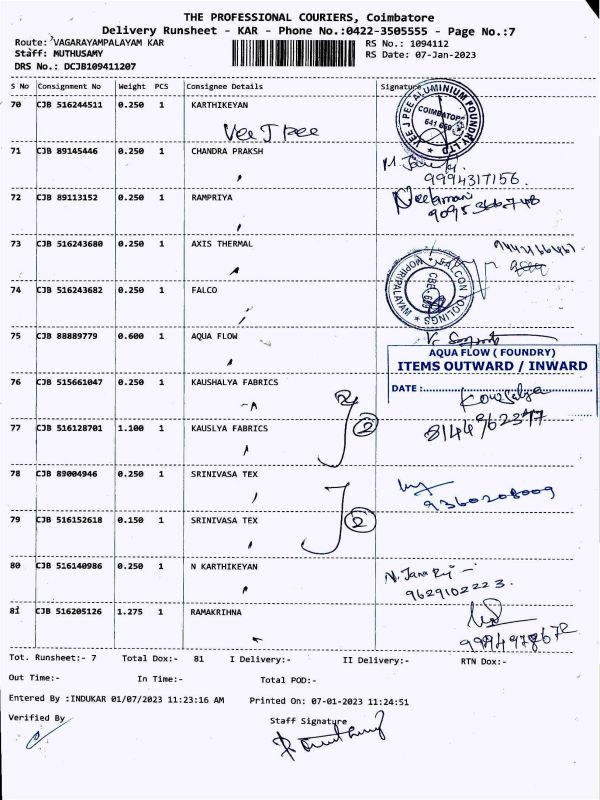 THE PROFESSIONAL COURIERS, Coimbatore
Delivery Runsheet - KAR - Phone No.:0422-3505555 - Page No.:7
Route: VAGARAYAMPALAYAM KAR RS No.: 1094112
Staff: MUTHUSAMY RS Date: 07-Jan-2023
DRS No.: DCJB109411207
S No Consignment No Weight PCS Consignee Details Signature
70 CJB 516244511 0.250 1 KARTHIKEYAN
Vee J Pee
VEE J PEE ALUMINIUM FOUNDRY LTD
COIMBATORE
641 669
71 CJB 89145446 0.250 1 CHANDRA PRAKSH
9994317156
72 CJB 89113152 0.250 1 RAMPRIYA
Neelamani
73 CJB 516243680 0.250 1 AXIS THERMAL
74 CJB 516243682 0.250 1 FALCO
FALCON TOOLINGS
MOPIRIPALAYAM
75 CJB 88889779 0.600 1 AQUA FLOW
AQUA FLOW ( FOUNDRY)
ITEMS OUTWARD / INWARD
DATE :
76 CJB 515661047 0.250 1 KAUSHALYA FABRICS
Kowsalya
77 CJB 516128701 1.100 1 KAUSLYA FABRICS
2
8144962377
78 CJB 89004946 0.250 1 SRINIVASA TEX
9360208009
79 CJB 516152618 0.150 1 SRINIVASA TEX
2
80 CJB 516140986 0.250 1 N KARTHIKEYAN
9629102223.
81 CJB 516205126 1.275 1 RAMAKRIHNA
Tot. Runsheet:- 7 Total Dox:- 81 I Delivery:- II Delivery:- RTN Dox:-
Out Time:- In Time:- Total POD:-
Entered By :INDUKAR 01/07/2023 11:23:16 AM Printed On: 07-01-2023 11:24:51
Verified By Staff Signature